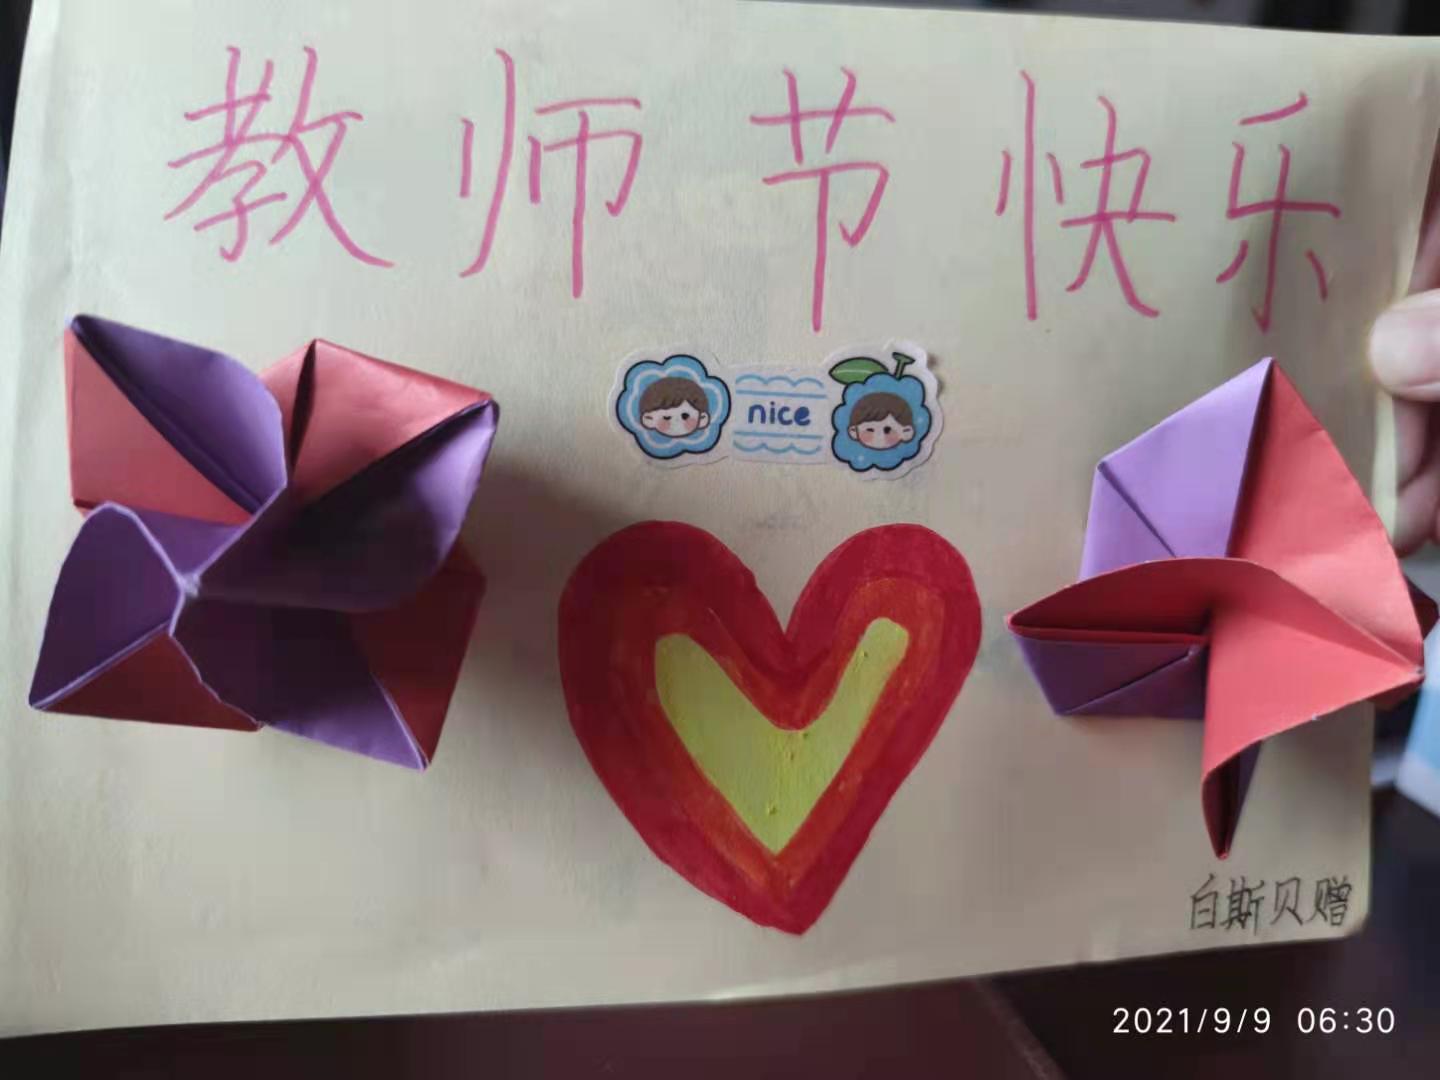 教师节快乐
nice
白斯贝赠
2021/9/9 06:30